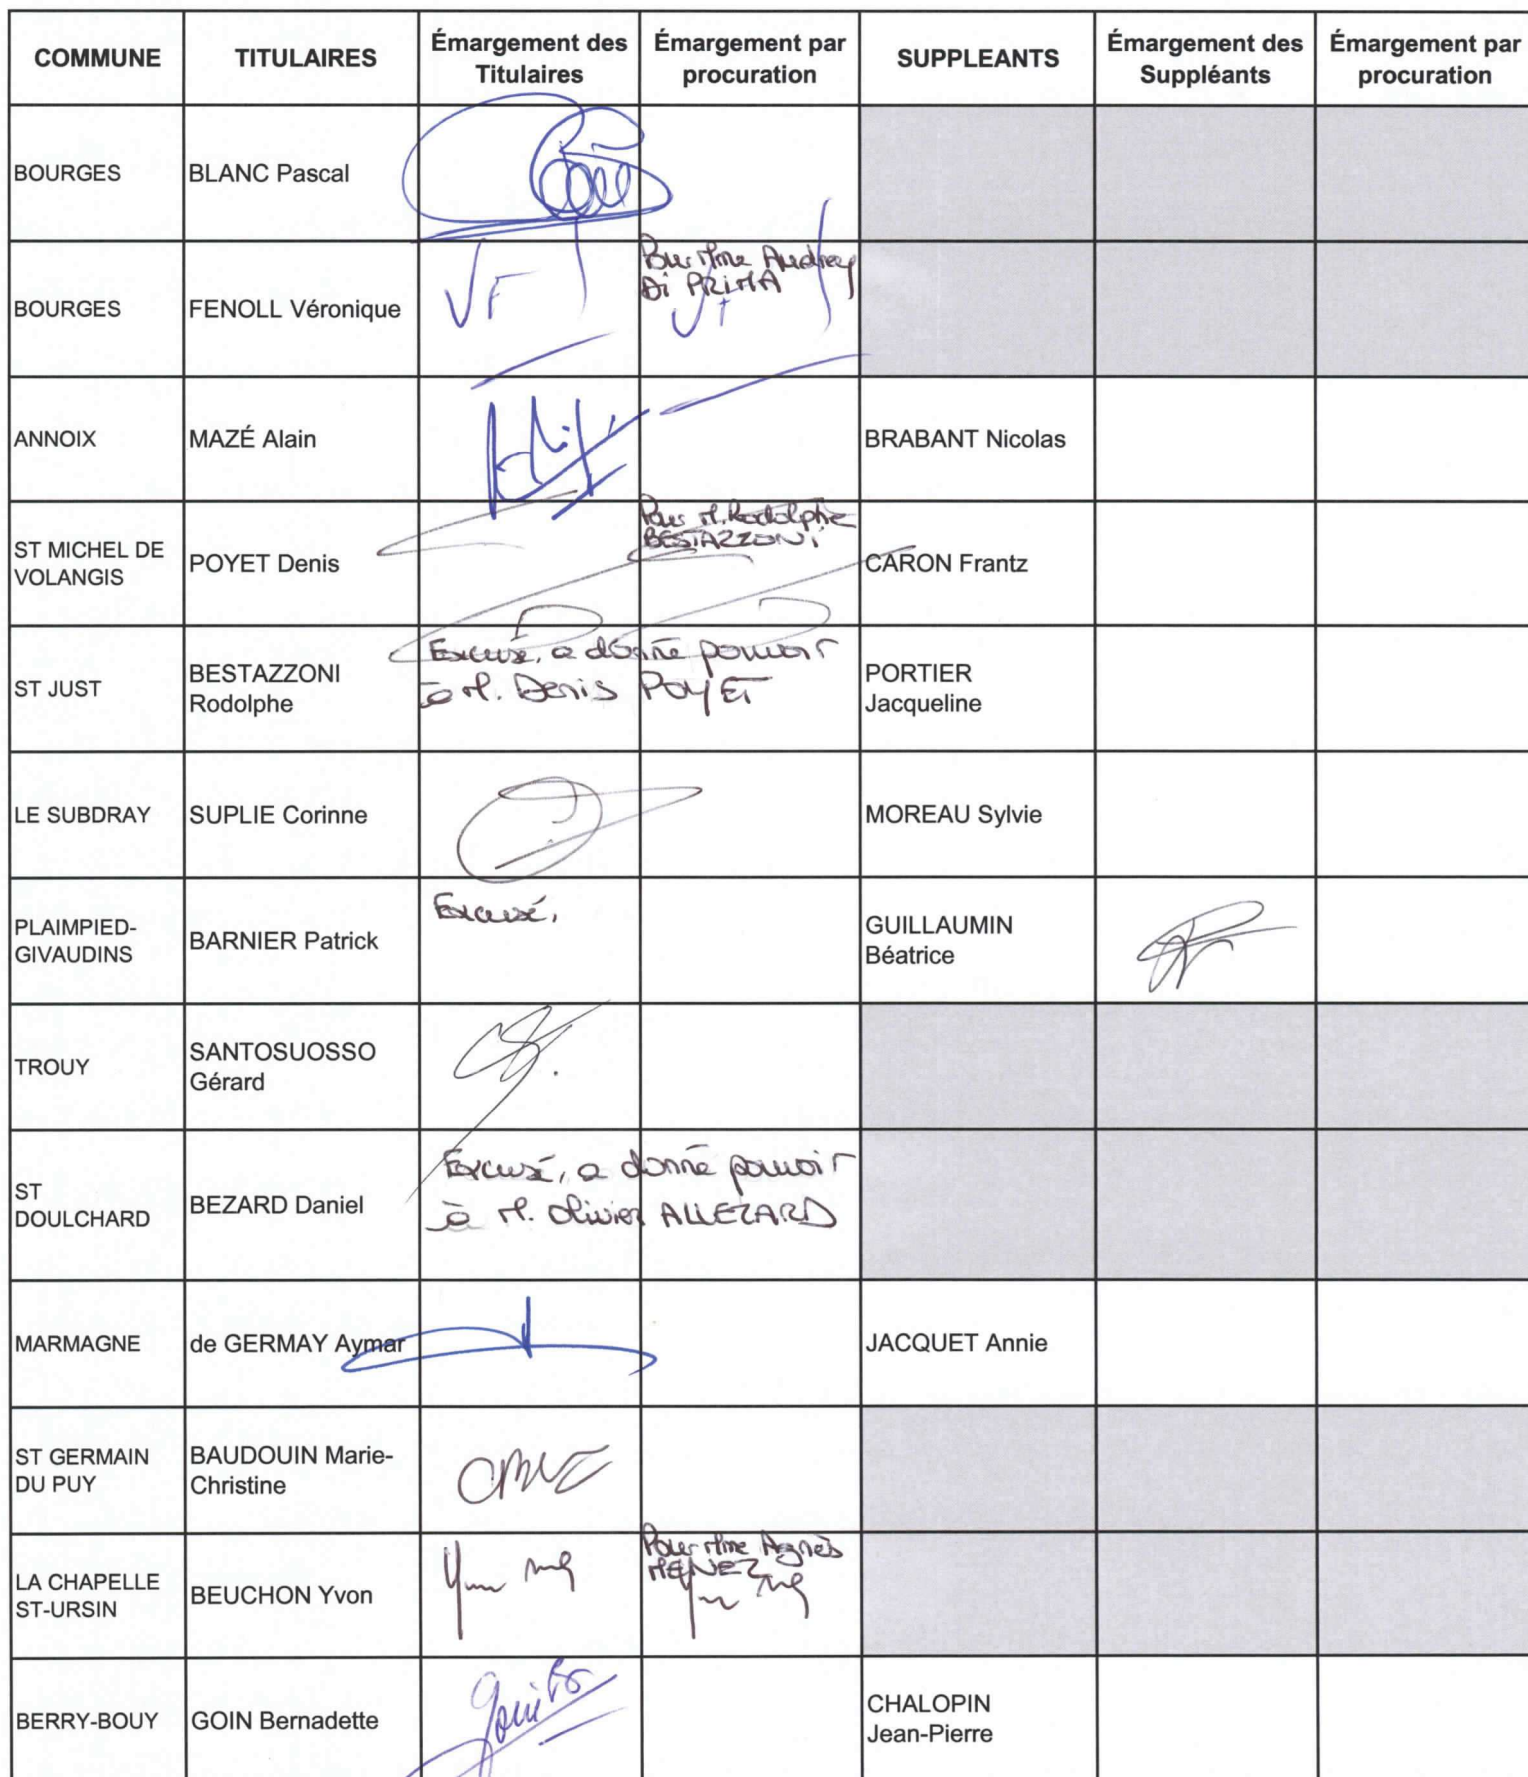 COMMUNE TITULAIRES Émargement des Titulaires Émargement par procuration SUPPLEANTS Émargement des Suppléants Émargement par procuration
BOURGES BLANC Pascal
BOURGES FENOLL Véronique VF Pour Mme Audrey
Di PRIMA
VF
ANNOIX MAZÉ Alain BRABANT Nicolas
ST MICHEL DE
VOLANGIS POYET Denis Pour M. Rodolphe
BESTAZZONI CARON Frantz
ST JUST BESTAZZONI
Rodolphe Excusé, a donné pouvoir
à M. Denis POYET PORTIER
Jacqueline
LE SUBDRAY SUPLIE Corinne MOREAU Sylvie
PLAIMPIED-
GIVAUDINS BARNIER Patrick Excusé, GUILLAUMIN
Béatrice
TROUY SANTOSUOSSO
Gérard
ST
DOULCHARD BEZARD Daniel Excusé, a donné pouvoir
à M. Olivier ALLEZARD
MARMAGNE de GERMAY Aymar JACQUET Annie
ST GERMAIN
DU PUY BAUDOUIN Marie-
Christine
LA CHAPELLE
ST-URSIN BEUCHON Yvon Pour Mme Agnès
MENEZ
BERRY-BOUY GOIN Bernadette CHALOPIN
Jean-Pierre